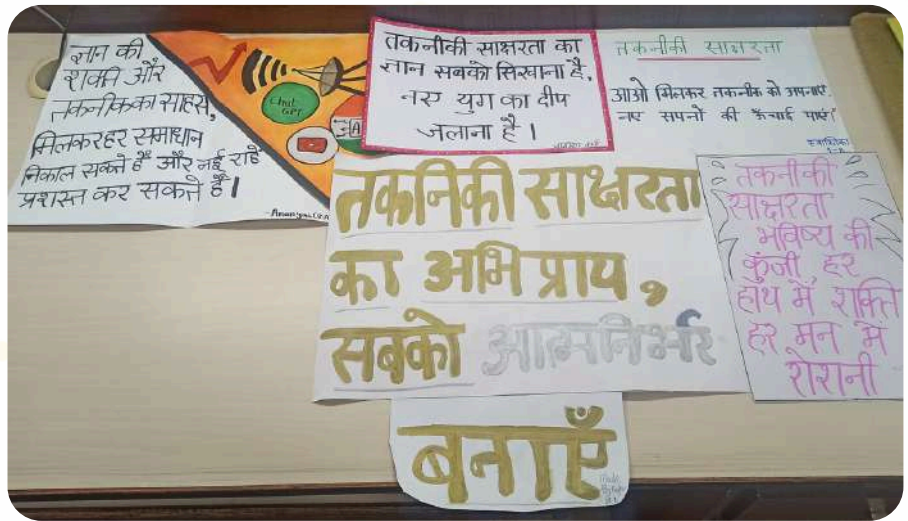 ज्ञान की
शक्ति और
तकनीक का साहस,
मिलकर हर समाधान
निकाल सकते हैं और नई राहें
प्रशस्त कर सकते हैं।
Chat
GPT
तकनीकी साक्षरता का
ज्ञान सबको सिखाना है,
नए युग का दीप
जलाना है।
तकनीकी साक्षरता
आओ मिलकर तकनीक को अपनाएं,
नए सपनों की ऊँचाई पाएं।
तकनिकी साक्षरता
का अभिप्राय,
सबको आत्मनिर्भर
बनाएँ
तकनीकी
साक्षरता
भविष्य की
कुंजी, हर
हाथ में शक्ति
हर मन में
रोशनी